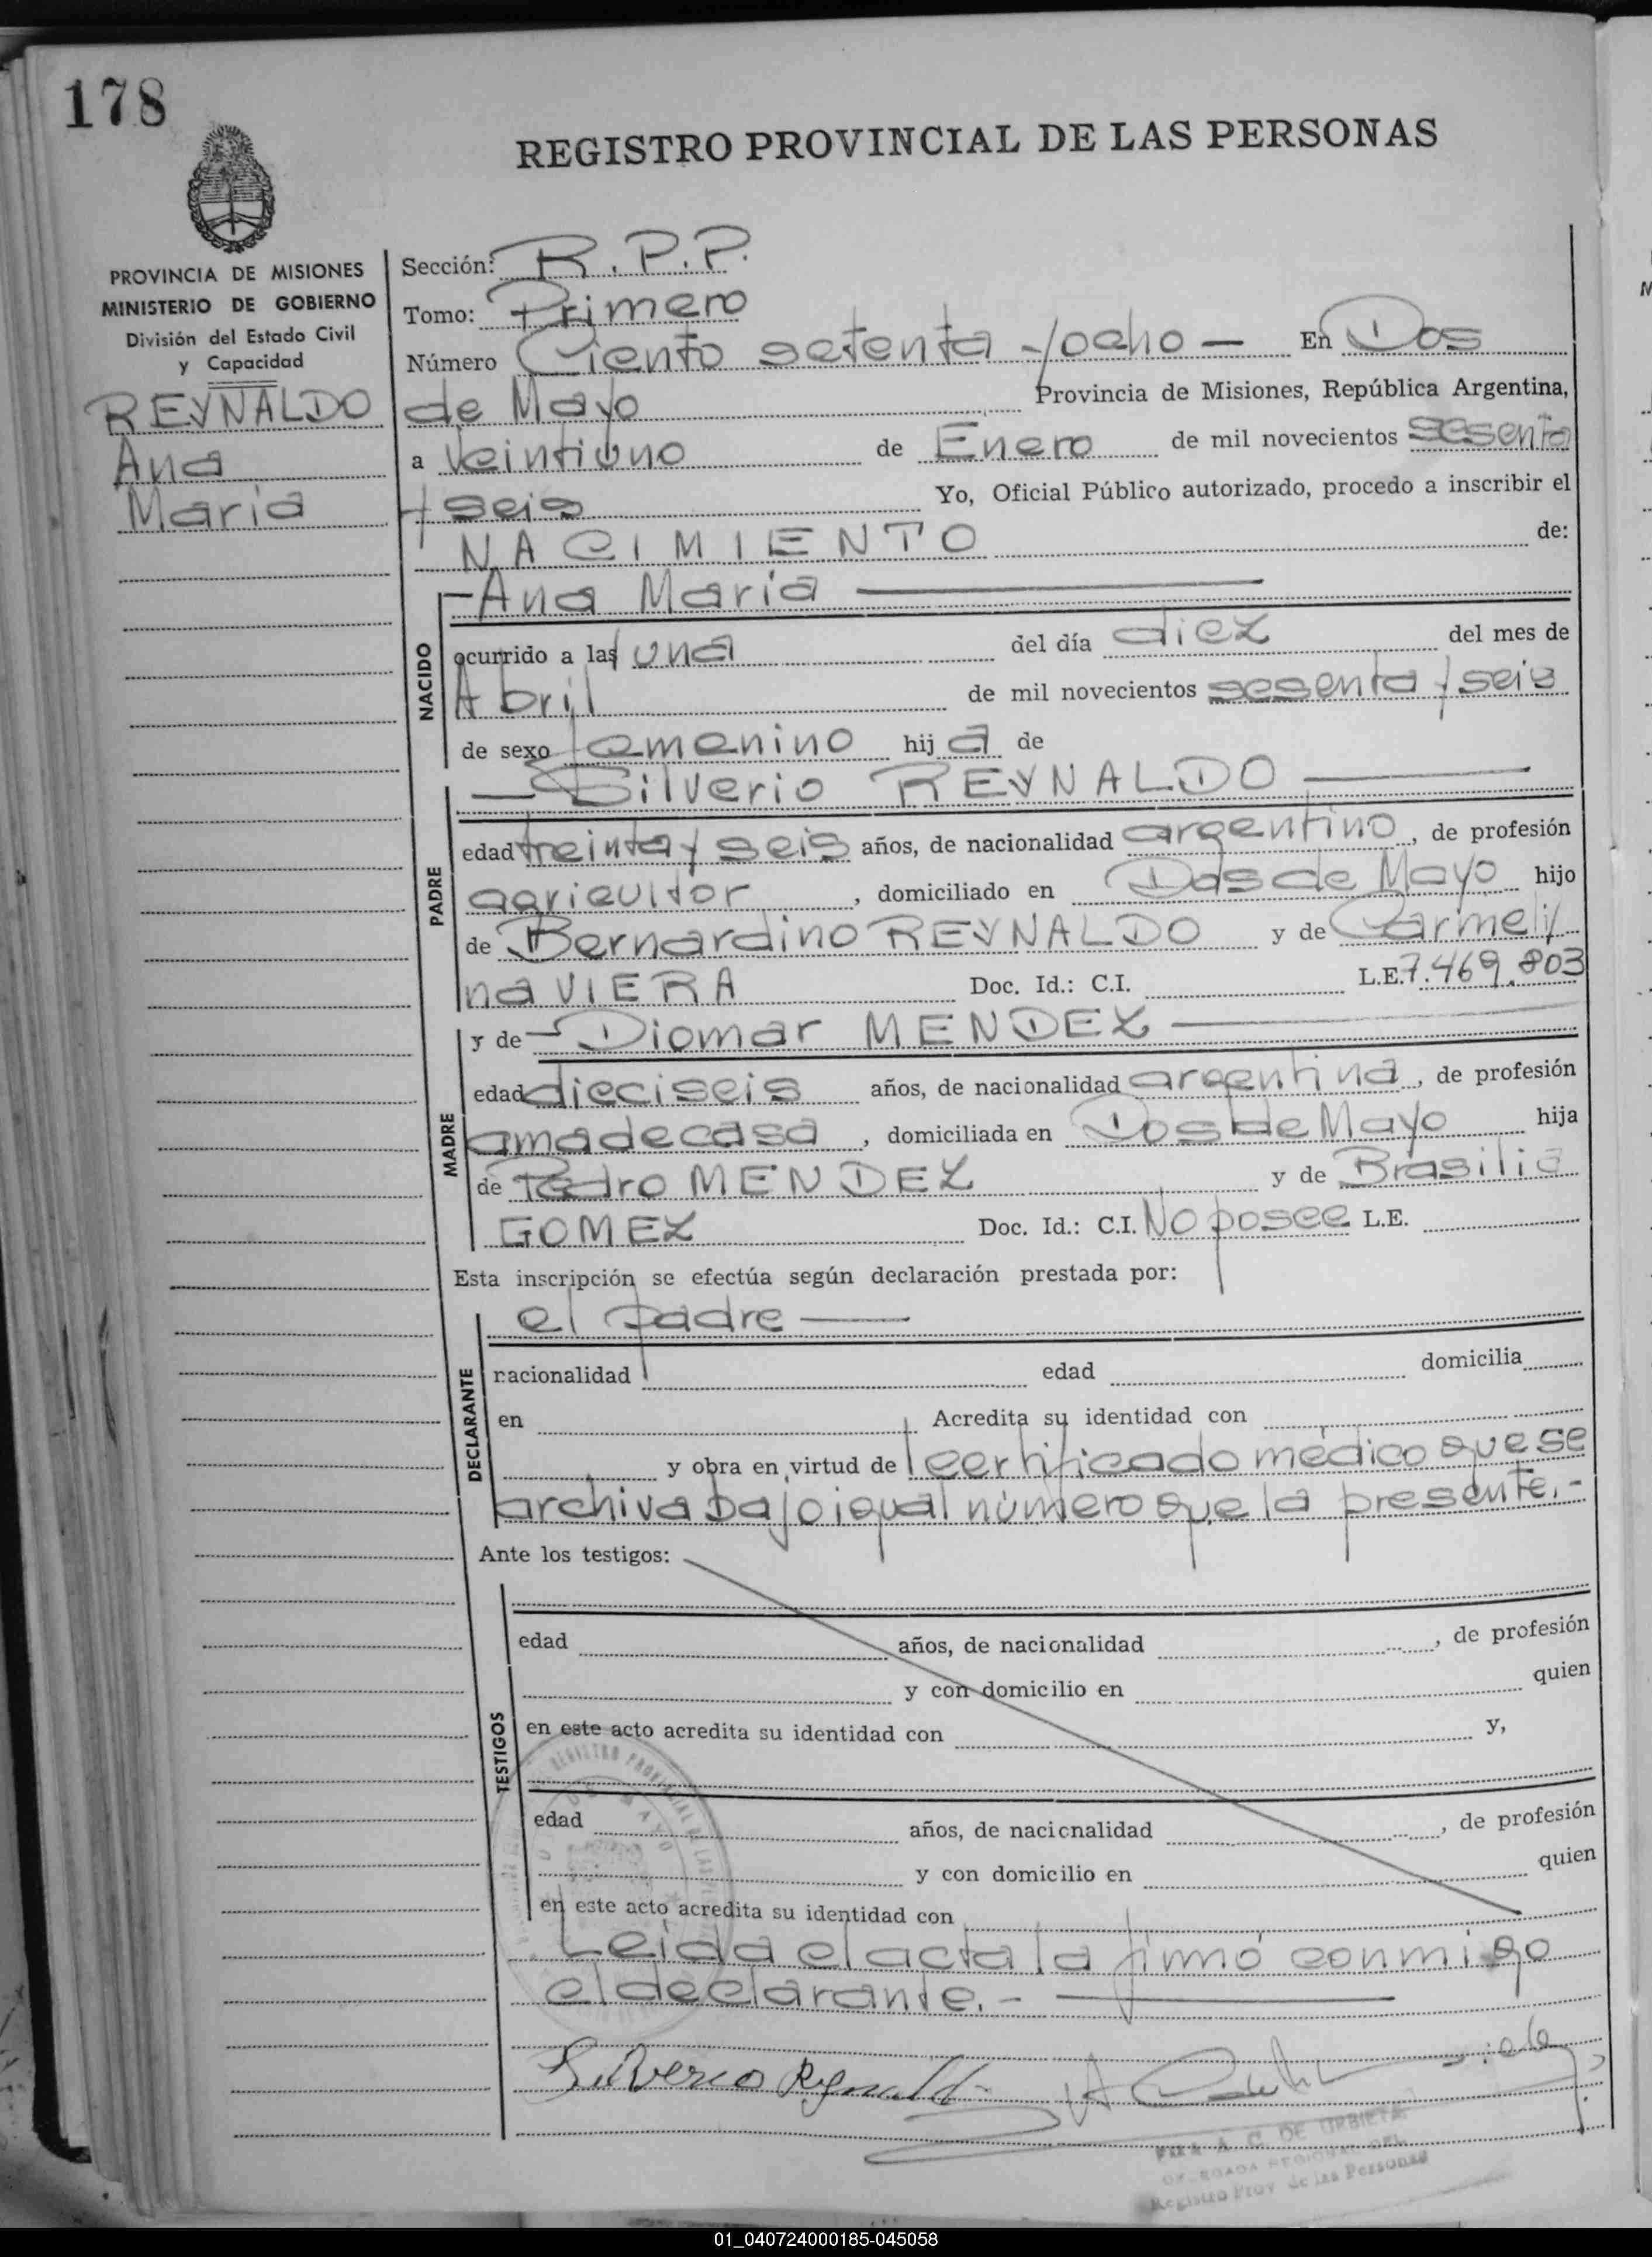 178
REGISTRO PROVINCIAL DE LAS PERSONAS
PROVINCIA DE MISIONES
MINISTERIO DE GOBIERNO
División del Estado Civil
y Capacidad
REYNALDO
Ana
Maria
Sección: R.P.P.
Tomo: Primero
Número Ciento setenta y ocho — En Dos
de Mayo Provincia de Misiones, República Argentina,
a veintiuno de Enero de mil novecientos sesenta
y seis Yo, Oficial Público autorizado, procedo a inscribir el
NACIMIENTO de:
NACIDO
—Ana Maria —
ocurrido a las una del día diez del mes de
Abril de mil novecientos sesenta y seis
de sexo femenino hija de
PADRE
— Silverio REYNALDO —
edad treinta y seis años, de nacionalidad argentino, de profesión
agricultor, domiciliado en Dos de Mayo hijo
de Bernardino REYNALDO y de Carmeli/
na VIERA Doc. Id.: C.I. L.E. 7.469.803
MADRE
y de — Diomar MENDEZ —
edad dieciseis años, de nacionalidad argentina, de profesión
ama de casa, domiciliada en Dos de Mayo hija
de Pedro MENDEZ y de Brasilia
GOMEZ Doc. Id.: C.I. No posee L.E.
Esta inscripción se efectúa según declaración prestada por:
DECLARANTE
el padre —
nacionalidad edad domicilia
en Acredita su identidad con
y obra en virtud de certificado médico que se
archiva bajo igual número que la presente.-
Ante los testigos:
TESTIGOS
edad años, de nacionalidad, de profesión
y con domicilio en quien
en este acto acredita su identidad con y,
edad años, de nacionalidad, de profesión
y con domicilio en quien
en este acto acredita su identidad con
Leida el acta la firmó conmigo
el declarante.- —
Silverio Reynaldo
A. C. DE URBIETA
DELEGADA REGIONAL DEL
Registro Prov de las Personas
REGISTRO PROVINCIAL DE LAS
01_040724000185-045058